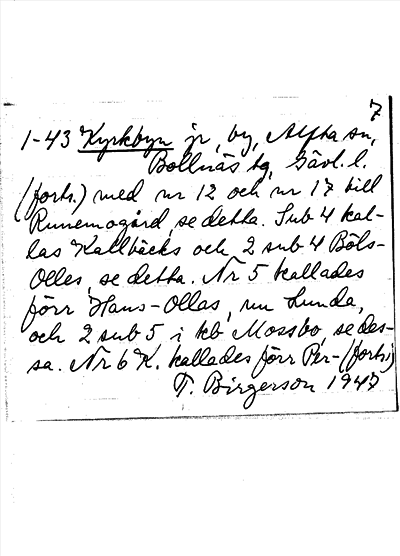 7
1-43 Kyrkbyn jr, by, Alfta sn,
Bollnäs tg, Gävl. l.
(forts.) med nr 12 och nr 17 till
Runemogård, se detta. Sub 4 kal-
las Källbäcks och 2 sub 4 Böls-
Olles, se detta. Nr 5 kallades
förr Hans-Ollas, nu Lunda,
och 2 sub 5, i kb Mossbo, se des-
sa. Nr 6 K. kallades förr Per- (forts.)
T. Birgerson 1947